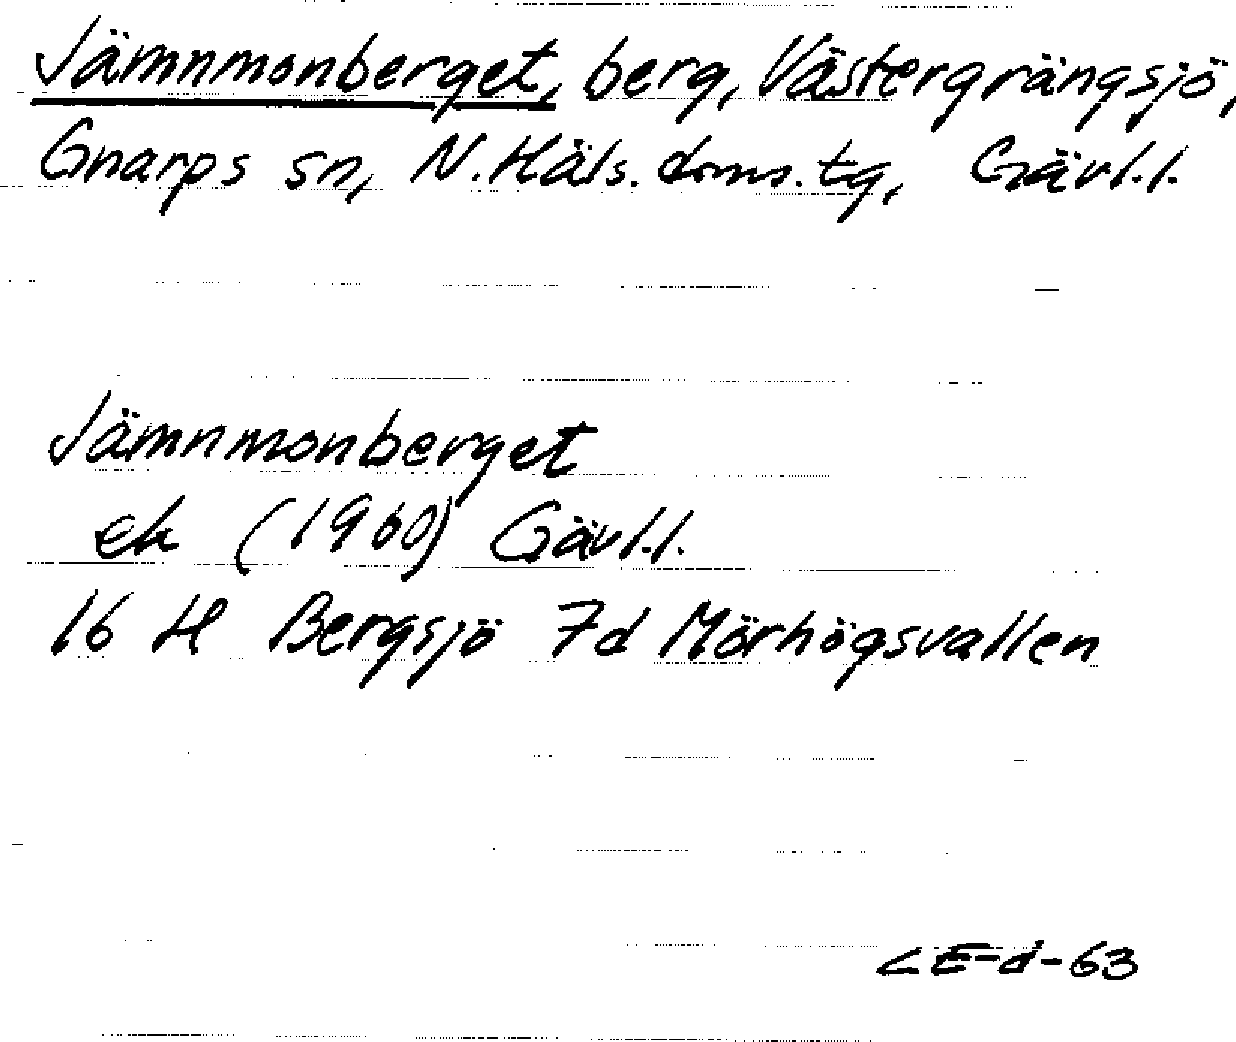 Jämnmonberget, berg, Västergrängsjö,
Gnarps sn, N. Häls. doms. tg, Gävl.l.
Jämnmonberget
ek (1960) Gävl.l.
16 H Bergsjö 7d Mörhögsvallen
LE-d-63